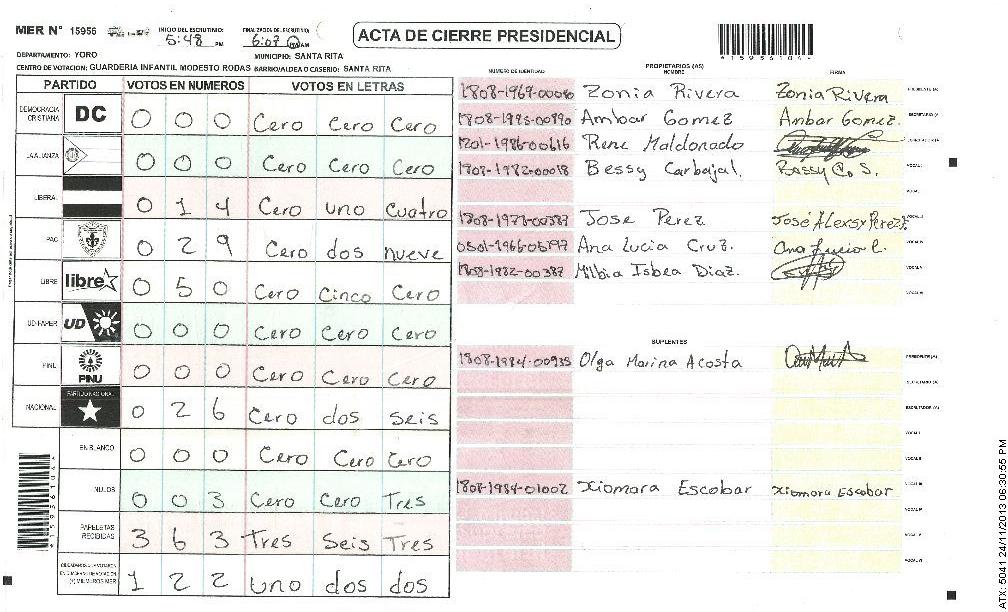 MER N° 15956 INICIO DEL ESCRUTINIO: 5:48 PM FINALIZACION DEL ESCRUTINIO: 6:07 AM
ACTA DE CIERRE PRESIDENCIAL
*15956104*
DEPARTAMENTO: YORO MUNICIPIO: SANTA RITA
CENTRO DE VOTACION: GUARDERIA INFANTIL MODESTO RODAS BARRIO/ALDEA O CASERIO: SANTA RITA
PARTIDO VOTOS EN NUMEROS VOTOS EN LETRAS
DEMOCRACIA CRISTIANA DC 0 0 0 Cero Cero Cero
LA ALIANZA 0 0 0 Cero Cero Cero
LIBERAL 0 1 4 Cero uno cuatro
PAC 0 2 9 Cero dos nueve
LIBRE libre 0 5 0 Cero Cinco Cero
UD-FAPER UD 0 0 0 Cero Cero Cero
PINU PINU 0 0 0 Cero Cero Cero
NACIONAL PARTIDO NACIONAL 0 2 6 Cero dos seis
EN BLANCO 0 0 0 Cero Cero Cero
NULOS 0 0 3 Cero Cero Tres
PAPELETAS RECIBIDAS 3 6 3 Tres Seis Tres
1 2 2 uno dos dos
*15956104*
PROPIETARIOS (AS)
NUMERO DE IDENTIDAD NOMBRE FIRMA
Zonia Rivera Zonia Rivera PRESIDENTE (A)
Ambar Gomez Ambar Gomez. SECRETARIO (A)
1201-1986-00616 Rene Maldonado ESCRUTADOR (A)
1807-1982-00018 Bessy Carbajal. Bessy C. S. VOCAL I
VOCAL II
Jose Perez José Alexsy Perez VOCAL III
Ana Lucia Cruz. Ana Lucia C. VOCAL IV
1808-1982-00387 Isbea Diaz. VOCAL V
VOCAL VI
SUPLENTES
1808-1984-00935 Olga Marina Acosta PRESIDENTE (A)
SECRETARIO (A)
ESCRUTADOR (A)
VOCAL I
VOCAL II
1807-1984-01002 Xiomara Escobar Xiomara Escobar VOCAL III
VOCAL IV
VOCAL V
VOCAL VI
ATX: 5041 24/11/2013 06:30:55 PM